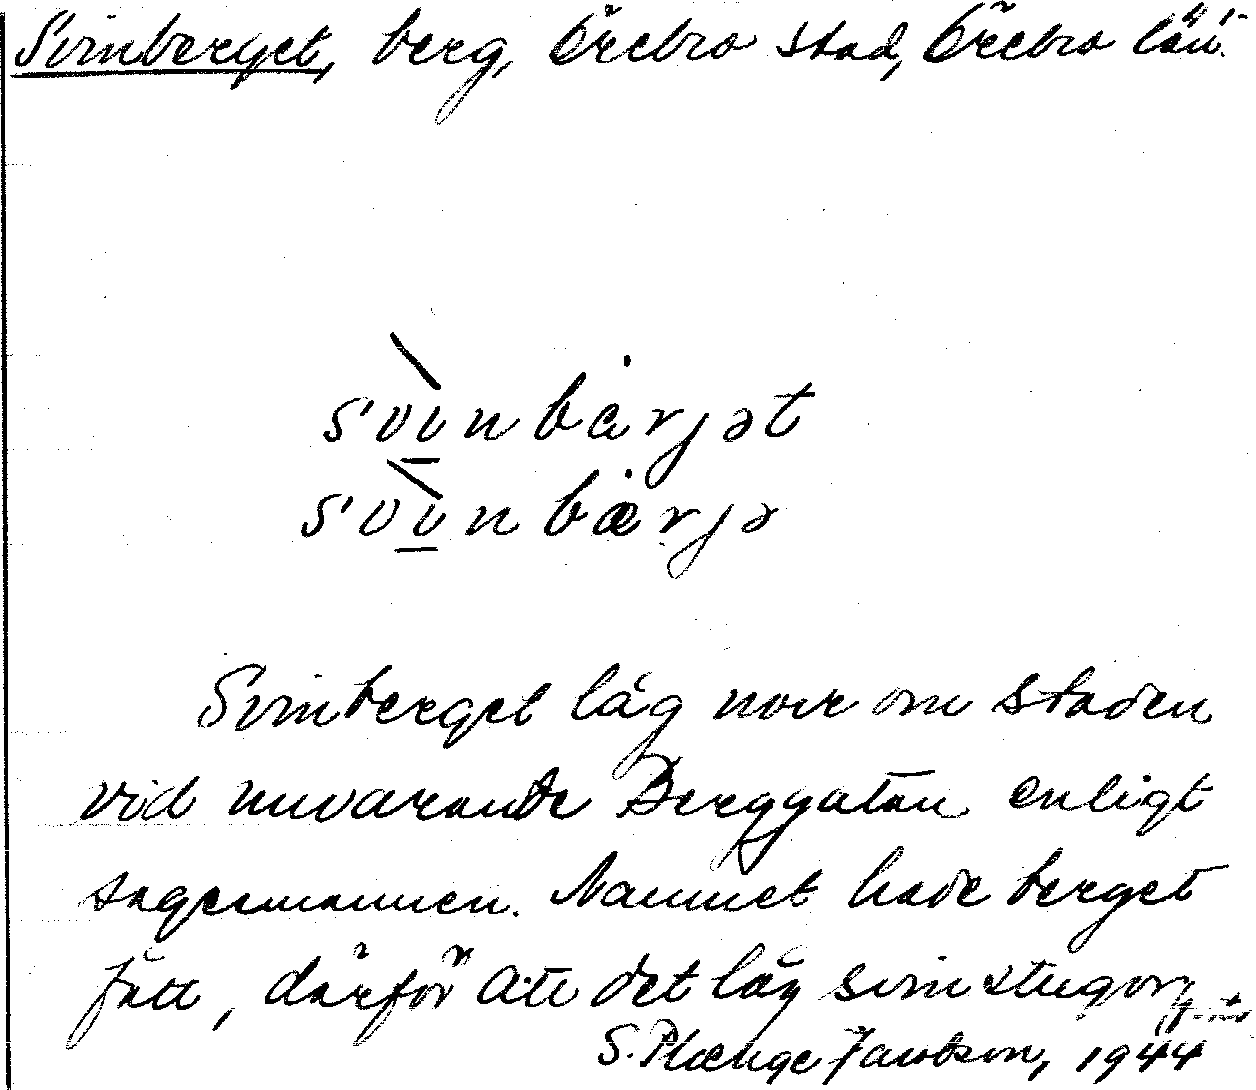 Svinberget, berg, Örebro stad, Örebro län.
svìnbàrjət
svìnbærjə
Svinberget låg norr om staden
vid nuvarande Berggatan enligt
sagesmannen. Namnet hade berget
fått, därför att det låg svinstugor
S. Plænge Jacobson, 1944